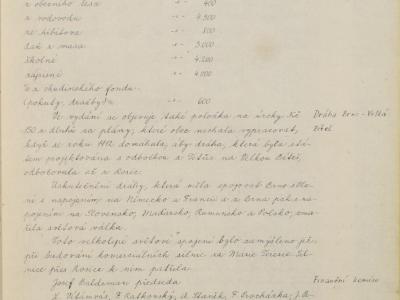 z obecního lesa -"- 400
z vodovodu -"- 4.500
ze hřbitova -"- 800
dak z masa -"- 3.000
školné -"- 4.200
zápisné -"- 4.000
%z chudinského fondu
(pokuty, dražby) -"- 600
Ve vydání se objevuje také položka na úroky Kč Dráha Brno - Velká
150 z dluhů za plány, které obec nechala vypracovat, Bíteš
když se roku 1912 domáhala, aby dráha, která byla stá-
tem projektována s odbočkou z Tetčic na Velkou Bíteš,
odbočovala až z Rosic.
Uskutečnění dráhy, která měla spojovat Brno
s napojením na Německo a Francii a z Brna pak s na-
pojením na Slovensko, Maďarsko, Rumunsko a Polsko, zma-
řila světová válka.
Toto velkolepé světové spojení bylo zamýšleno již
při budování komerciálních silnic za Marie Terezie. Sil-
nice přes Rosice k nim patřila.
Josef Valdeman předseda Finanční komise